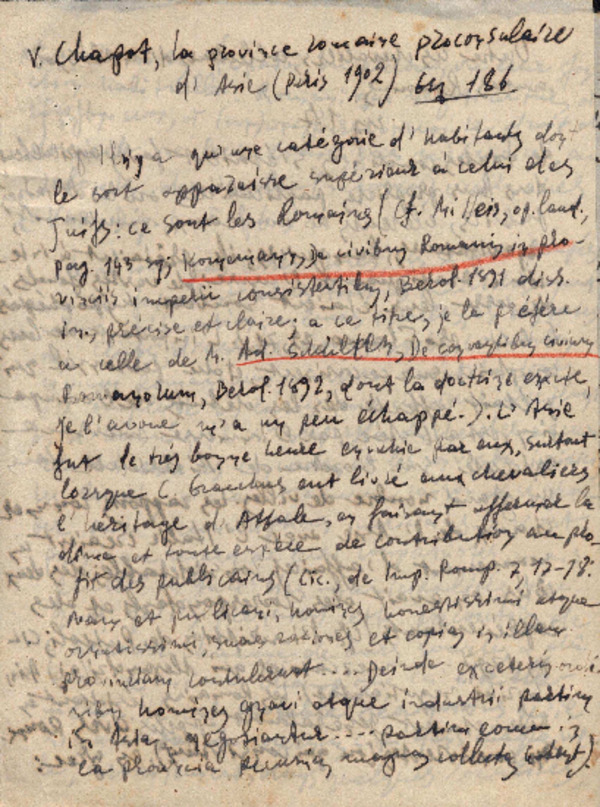 V. Chapot, la province romaine proconsulaire
d'Asie (Paris 1902) 186
Il n'y a qu'une catégorie d'habitants dont
le sort apparaisse supérieur à celui des
Juifs: ce sont les Romains (Cf. Mitteis, op. laud.,
pag. 143 sq; Kornemann, De civibus Romanis in pro-
vinciis imperii consistentibus, Berol. 1891 diss.
in., précise et claire; à ce titre, je la préfère
à celle de M. Ad. Schulten, De conventibus civium
Romanorum, Berol. 1892, dont la doctrine exacte,
je l'avoue m'a un peu échappé.). L'Asie
fut de très bonne heure envahie par eux, surtout
lorsque C. Gracchus eut livré aux chevaliers
l'héritage d'Attale, en faisant affermer la
dîme et toute espèce de contribution au pro-
fit des publicains (Cic., de Imp. Pomp. 7, 17-18:
Nam et publicani, homines honestissimi atque
ornatissimi, suas rationes et copias in illam
provinciam contulerunt.... Deinde ex ceteris ordi-
nibus homines gnavi atque industrii partim
in Asia negotiantur.... partim eorum in
ea provincia pecunias magnas collocatas